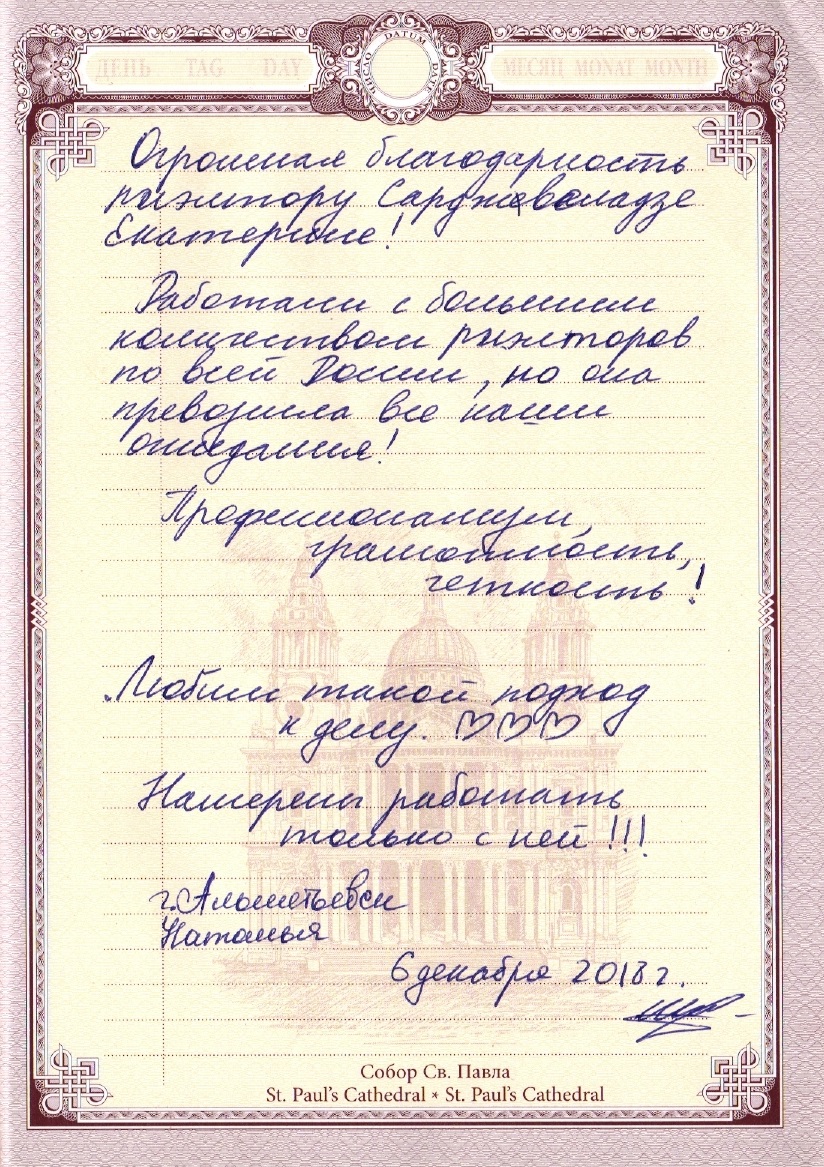 ДЕНЬ TAG DAY
ЧИСЛО DATUM DATE
МЕСЯЦ MONAT MONTH
Огромная благодарность
риэлтору Сарджвеладзе
Екатерине!
Работали с большим
количеством риэлторов
по всей России, но она
превозшла все наши
ожидания!
Профессионализм,
грамотность,
четкость!
Любим такой подход
к делу. ♡♡♡
Намерены работать
только с ней!!!
г. Альметьевск
Наталья
6 декабря 2018 г.
Собор Св. Павла
St. Paul's Cathedral * St. Paul's Cathedral